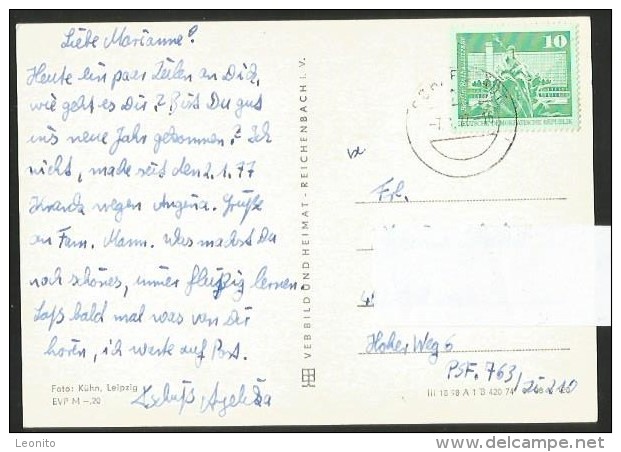 Liebe Marianne!
Heute ein paar Zeilen an Dich,
wie geht es Dir? Bist Du gut
ins neue Jahr gekommen? Ich
nicht, mache seit den 2.1.77
Krank wegen Angina. Grüße
an Fam. Mann. Was machst Du
noch schönes, immer fleißig lernen
Laß bald mal was von Dir
hören, ich warte auf Post.
Tschüß,
Foto: Kühn, Leipzig
EVP M -,20
VEB BILD UND HEIMAT · REICHENBACH I. V.
10
DEUTSCHE DEMOKRATISCHE REPUBLIK
Frl.
Hoher Weg 6
PSF. 763
III 18 98 A 1 B 420 74
Leonito
www.delcampe.net